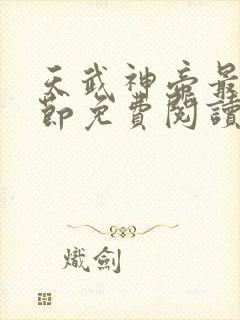 天武神帝最
節免費閱讀
熾劍